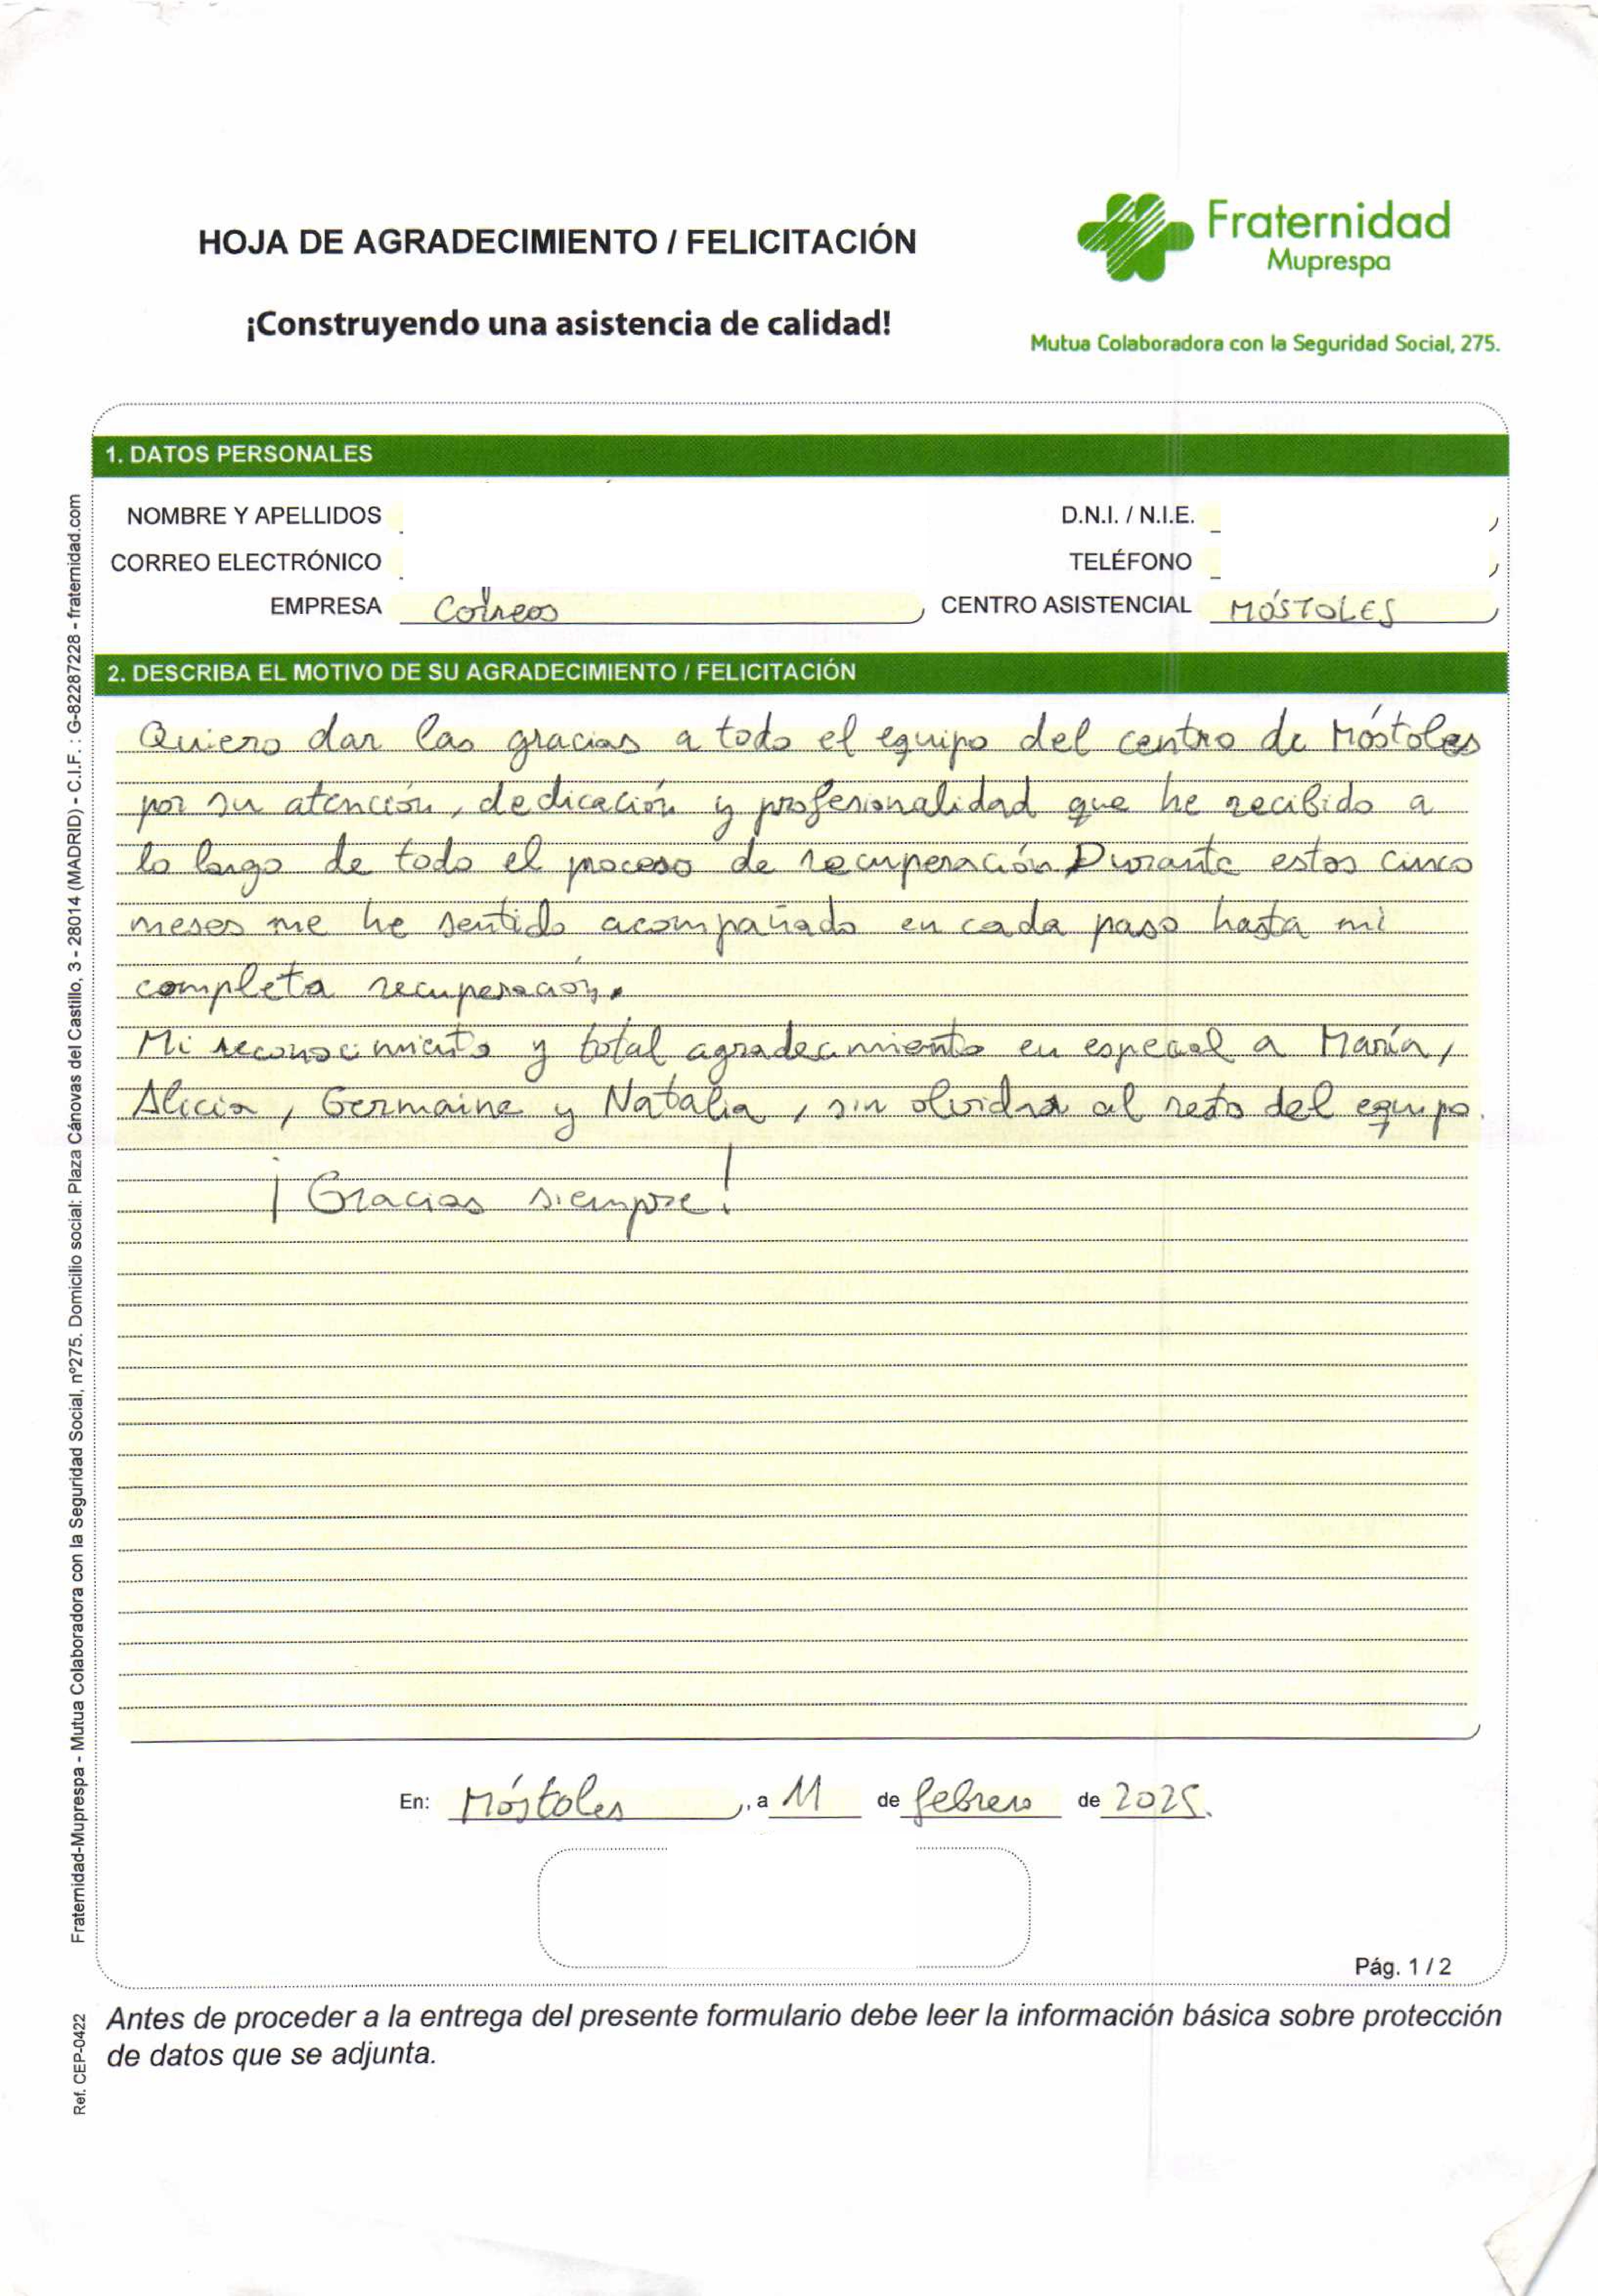 HOJA DE AGRADECIMIENTO / FELICITACIÓN
¡Construyendo una asistencia de calidad!
Fraternidad
Muprespa
Mutua Colaboradora con la Seguridad Social, 275.
1. DATOS PERSONALES
NOMBRE Y APELLIDOS
D.N.I. / N.I.E.
CORREO ELECTRÓNICO
TELÉFONO
EMPRESA Correos
CENTRO ASISTENCIAL MÓSTOLES
2. DESCRIBA EL MOTIVO DE SU AGRADECIMIENTO / FELICITACIÓN
Quiero dar las gracias a todo el equipo del centro de Móstoles
por su atención, dedicación y profesionalidad que he recibido a
lo largo de todo el proceso de recuperación. Durante estos cinco
meses me he sentido acompañado en cada paso hasta mi
completa recuperación.
Mi reconocimiento y total agradecimiento en especial a María,
Alicia, Germaine y Natalia, sin olvidar al resto del equipo.
¡Gracias siempre!
En: Móstoles, a 11 de febrero de 2025.
Pág. 1 / 2
Antes de proceder a la entrega del presente formulario debe leer la información básica sobre protección
de datos que se adjunta.
Fraternidad-Muprespa - Mutua Colaboradora con la Seguridad Social, nº275. Domicilio social: Plaza Cánovas del Castillo, 3 - 28014 (MADRID) - C.I.F. : G-82287228 - fraternidad.com
Ref. CEP-0422